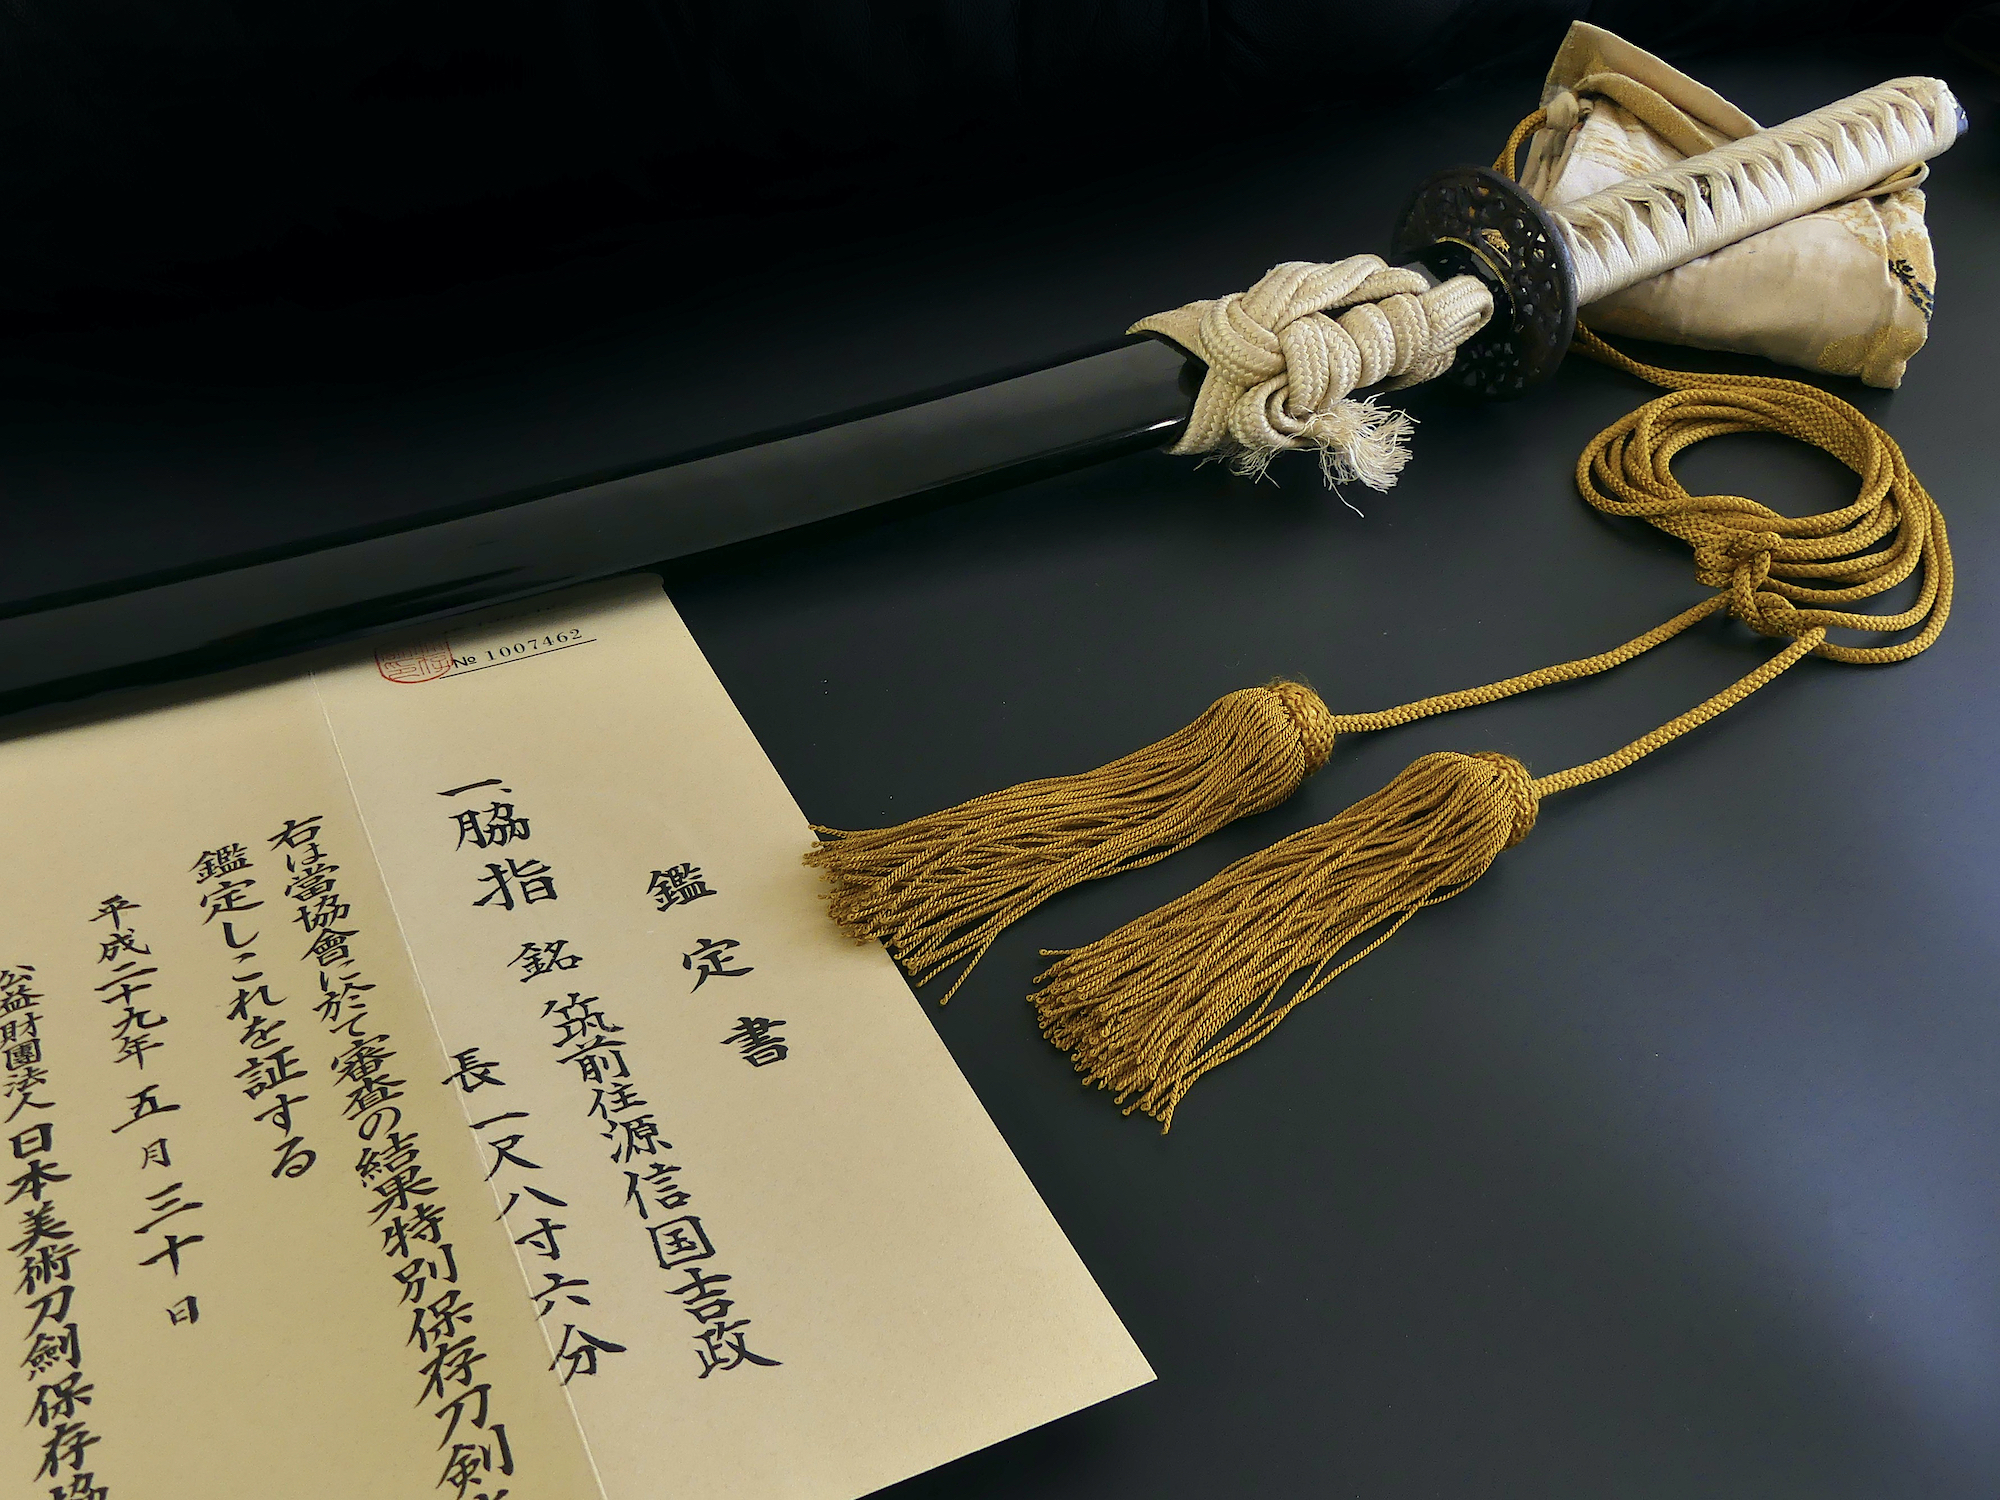 № 1007462
鑑定書
一、脇指 銘 筑前住源信国吉政
長 一尺八寸六分
右は當協會に於て審査の結果特別保存刀剣
鑑定しこれを証する
平成二十九年 五月三十日
公益財團法人日本美術刀劍保存協